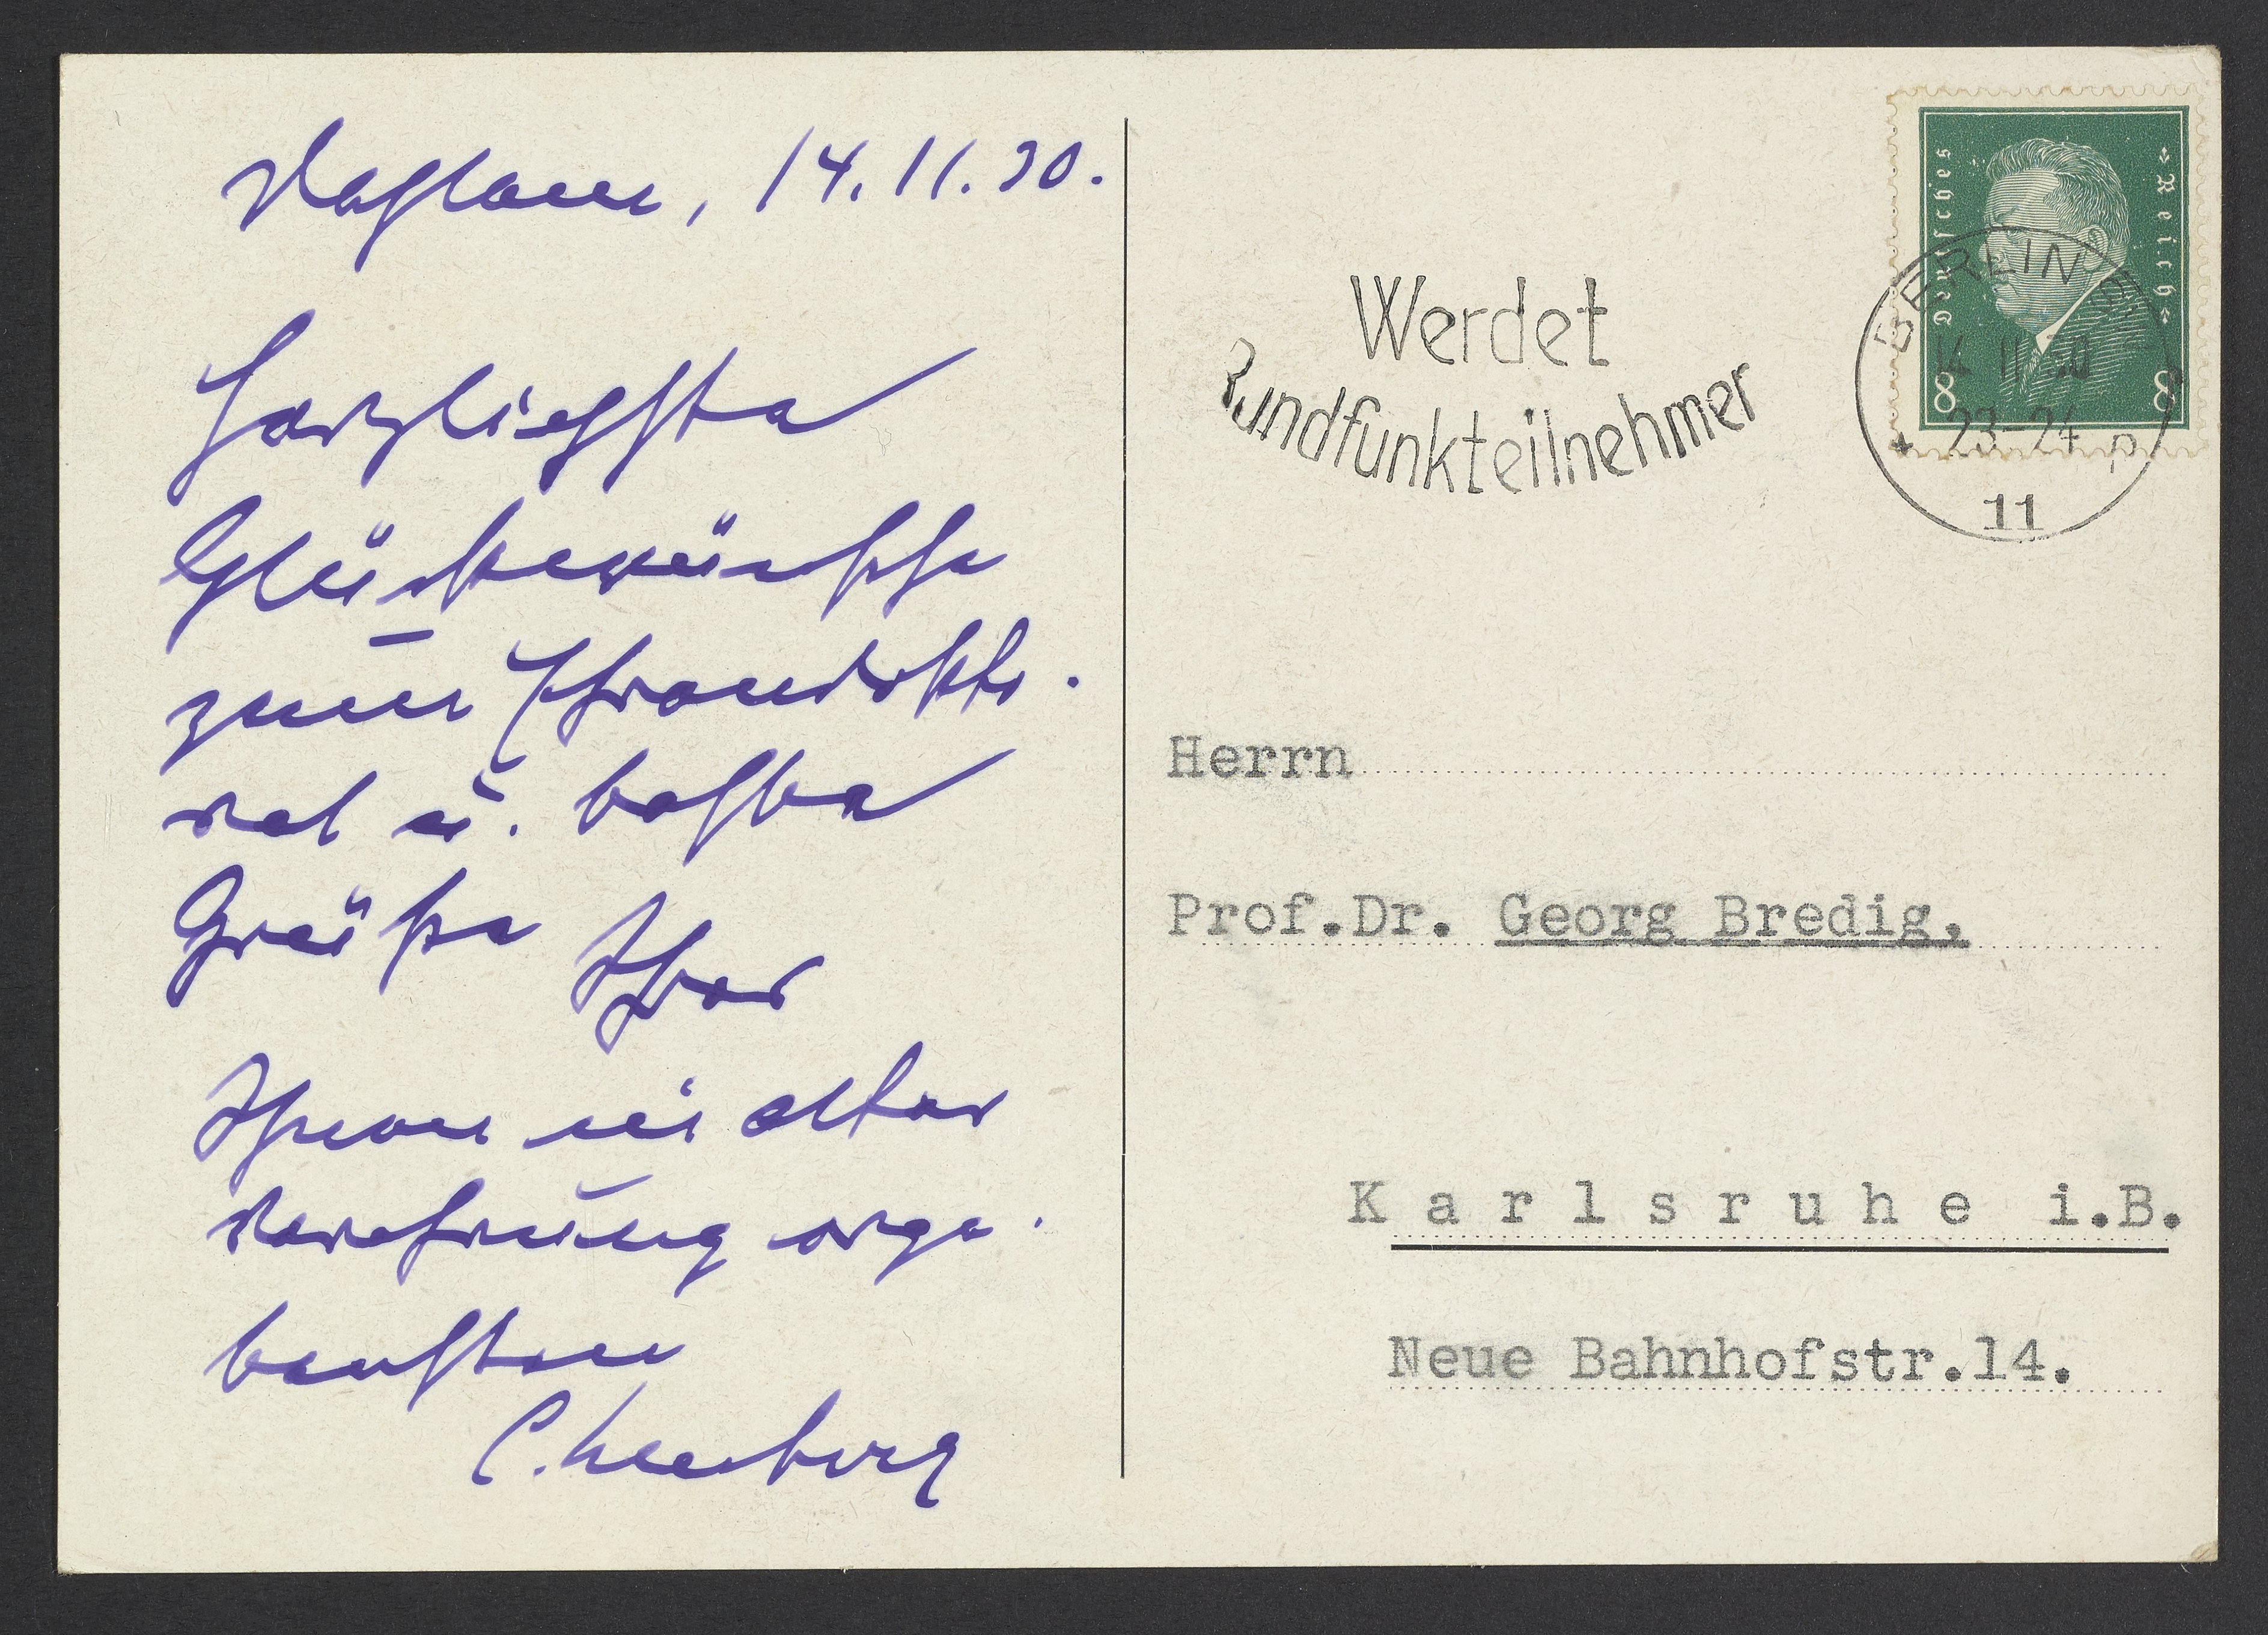 Dahlem, 14.11.30.
Herzlichste
Glückwünsche
zum Ehrendokto-
rat u. beste
Grüße Ihres
Ihnen in alter
Verehrung erge-
bensten
C. Neuberg
Werdet
Rundfunkteilnehmer
Deutsches
Reich
8 8
BERLIN
14 11 30
23-24
11
Herrn
Prof.Dr. Georg Bredig,
Karlsruhe i.B.
Neue Bahnhofstr.14.